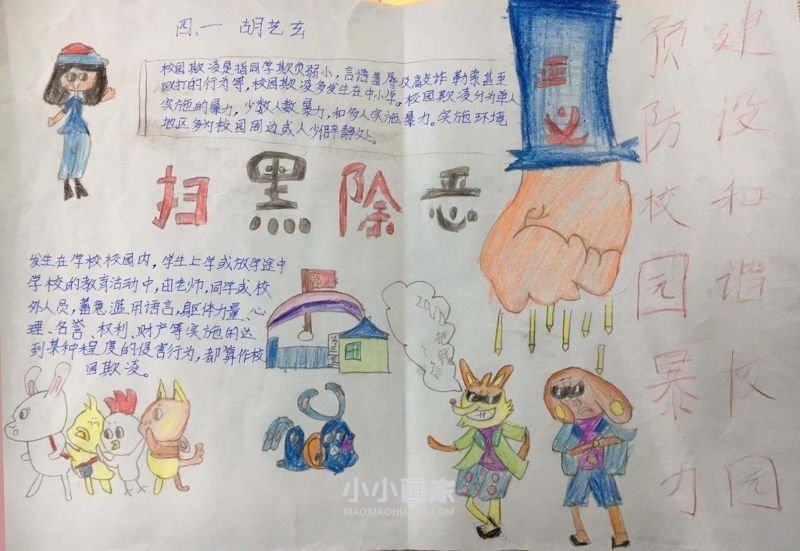 四、一 胡艺玄
校园欺凌是指同学欺负弱小,言语羞辱及敲诈勒索甚至
殴打的行为等,校园欺凌多发生在中小学。校园欺凌分为单人
实施的暴力,少数人数暴力,和多人实施暴力。实施环境
地区多为校园周边或人少僻静处。
正义
扫黑除恶
预防校园暴力
建设和谐校园
发生在学校校园内,学生上学或放学途中
学校的教育活动中,由老师,同学或校
外人员,蓄意滥用语言,躯体力量、心
理、名誉、权利、财产等实施的达
到某种程度的侵害行为,都算作校
园欺凌。
小小画家
XIAOXIAOHUAJIA.COM